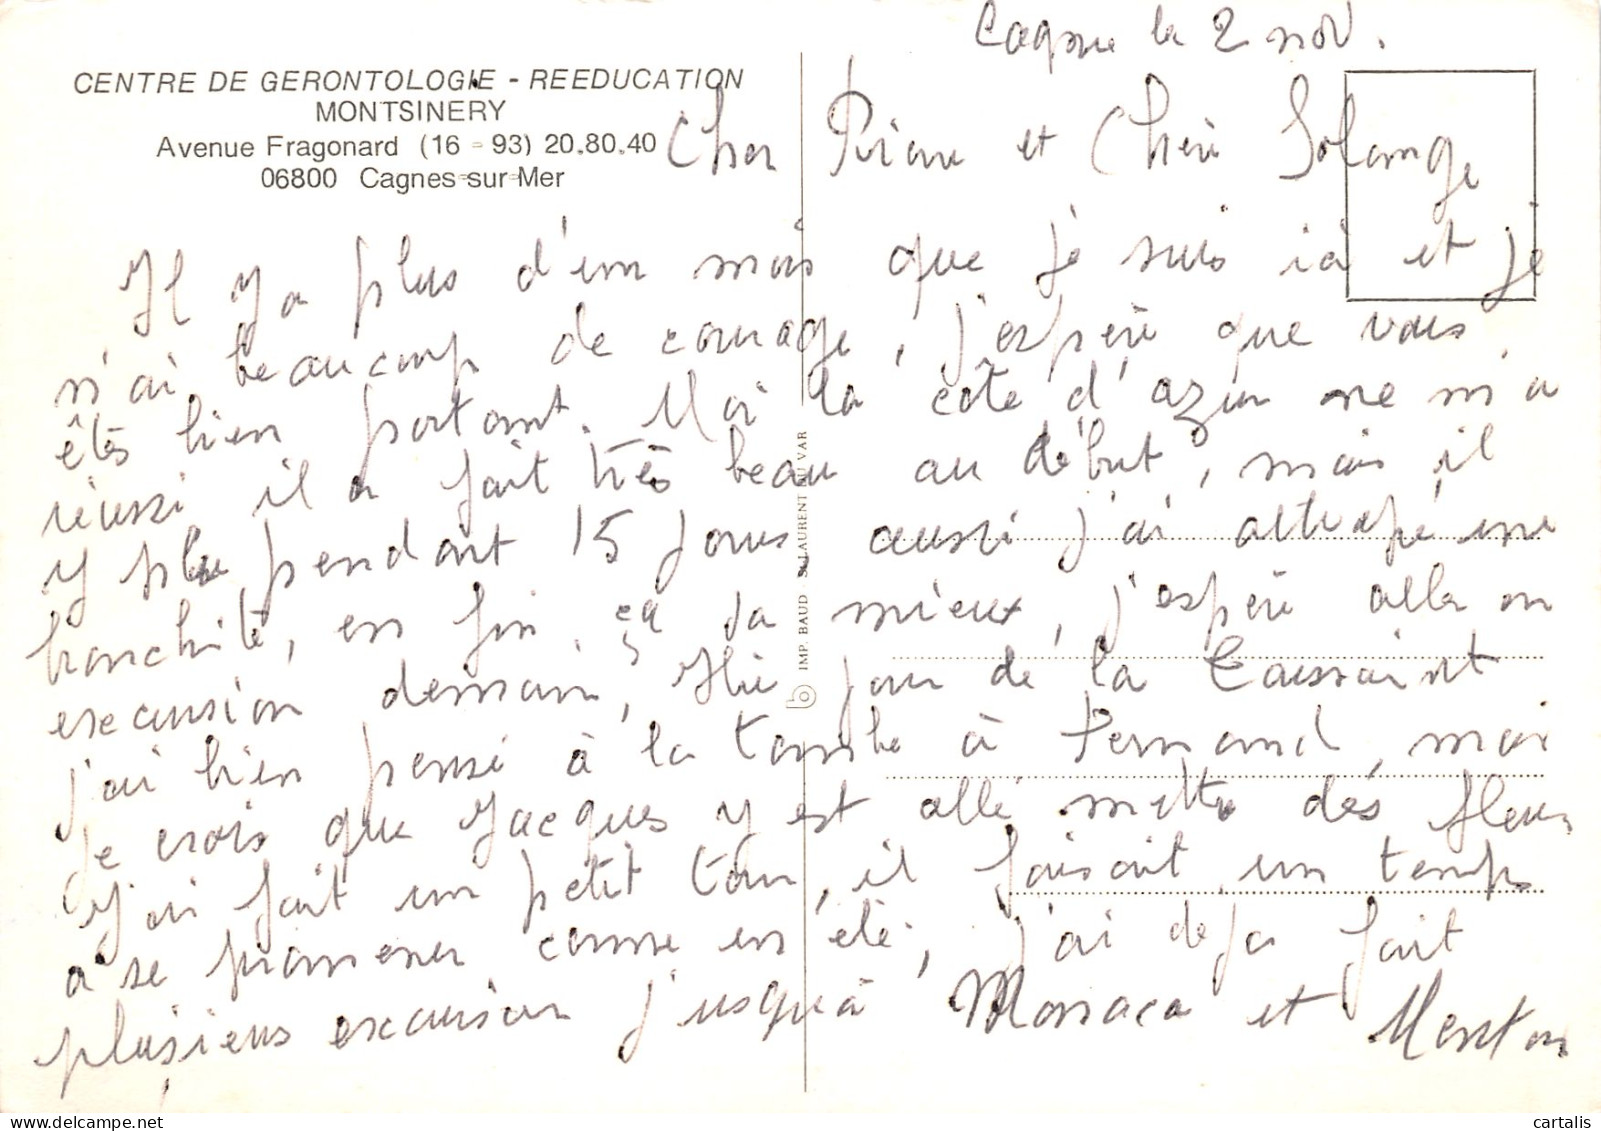 Cagne le 2 nov.
CENTRE DE GERONTOLOGIE - REEDUCATION
MONTSINERY
Avenue Fragonard (16 - 93) 20.80.40
06800 Cagnes-sur-Mer
Cher et Chère Solange
Il y a plus d'un mois que je suis ici et je
n'ai beaucoup de courage, j'espère que vous
êtes bien portant. Moi la côte d'azur ne m'a
réussi il a fait très beau au début, mais il
y plu pendant 15 jours aussi j'ai attrapé une
bronchite, en fin ça va mieux, j'espère aller en
excursion demain, Hie jour de la Toussaint
j'ai bien pensé à la tombe à Fernand, moi
je crois que Jacques y est allé mettre des fleurs
J'ai fait un petit tour, il faisait un temps
a se promener comme en été, j'ai deja fait
plusieurs excursion jusqu'à Monaco et Menton
IMP. BAUD ST LAURENT DU VAR
b
cartalis